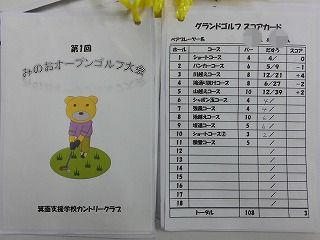 第1回
みのおオープンゴルフ大会
箕面支援学校カントリークラブ
グランドゴルフ スコアカード
ペアプレーヤー名
ホール コース パー だすう スコア
1 ショートコース 4 4/ 0
2 バンカーコース 6 5/9 -1
3 川越えコース 8 12/21 +4
4 コース 8 6/27 -2
5 山越えコース 10 12/39 +2
6 コース 4
7 コース 4
8 コース 6
9 坂道コース 5
10 ショートコース② 3
11 コース 5
12
13
14
15
16
17
18
トータル 108 3